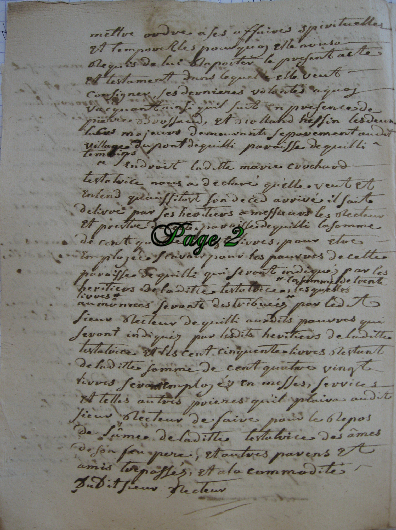 mettre ordre a ses affaires spirituelles
et temporelles pourquoy elle nous a
requis de lui rapporter le present acte
et testament dans lequel elle veut
consigner ses dernieres volontés a quoy
vacquant ainsi que suit en presence de
pierre et les deux
majeurs demeurants separement audit
village du pont dequilli paroisse dequilli
temoins
Endroit laditte marie
testatrice nous a declaré quelle veut et
entend quaussitost son deced arrivé il soit
delivré par ses heritiers a messieurs les Recteur
et pretre de la paroisse dequilli la somme
de cent quatre vingt livres, pour etre
Employée Scavoir pour les pauvres de cette
paroisse dequilli qui seront indiqués par les
heritiers de laditte testatrice, la somme de trente
livres lesquelles
aumonces seront distribuées par ledit
sieur Recteur de quilli auxdits pauvres qui
seront indiqués par lesdits heritiers de laditte
testatrice, et les cent cinquante livres restant
de laditte somme de cent quatre vingt
livres seront employés en messes, services
et telles autres prieres quil plaira audit
sieur Recteur de faire pour le Repos
de l'ame de laditte testatrice des âmes
de son feu pere, et autres parens et
amis trepassés, et a la commodité
Dudit sieur Recteur
Page 2